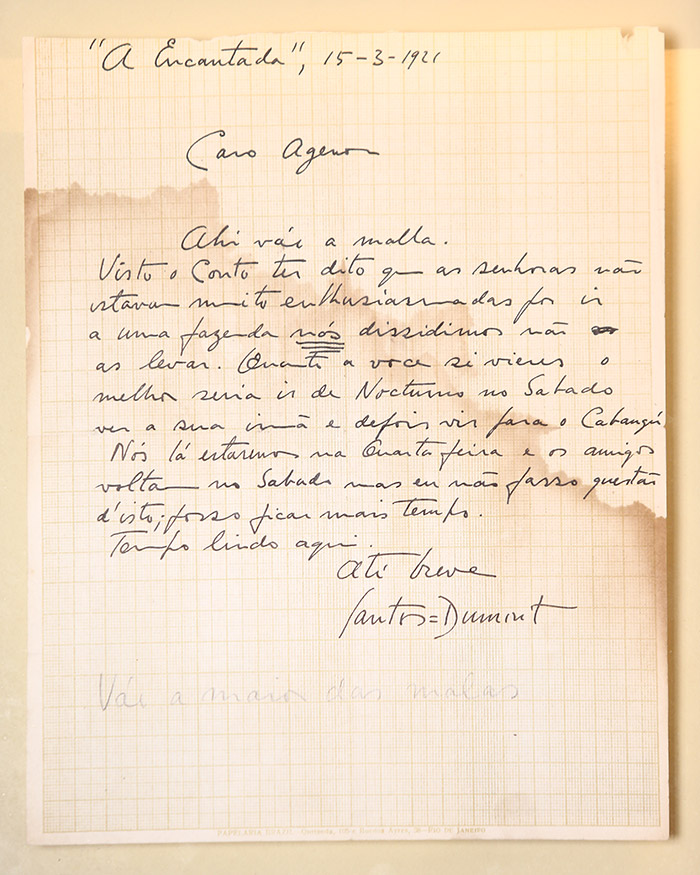 "A Encantada", 15-3-1921
Caro Agenor
Ahi vái a malla.
Visto o Couto ter dito que as senhoras não
estavam muito enthusiasmadas por ir
a uma fazenda nós dissidimos não
as levar. Quanto a voce si vieres o
melhor seria ir de Nocturno no Sabado
ver a sua irmã e depois vir para o Cabangú.
Nós lá estaremos na Quarta feira e os amigos
voltam no Sabado mas eu não fasso questão
d'isto; posso ficar mais tempo.
Tempo lindo aqui.
Até breve
Santos=Dumont
Vái a maior das malas
PAPELARIA RIO DE JANEIRO